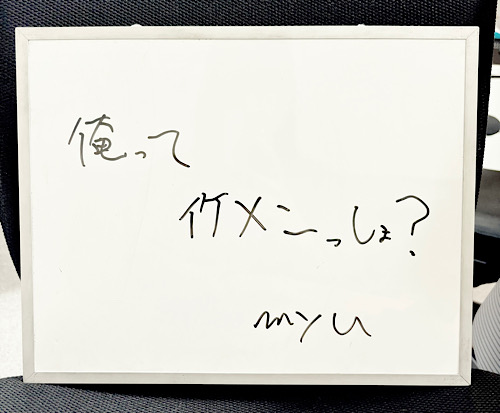 俺って
イケメンっしょ?
myu